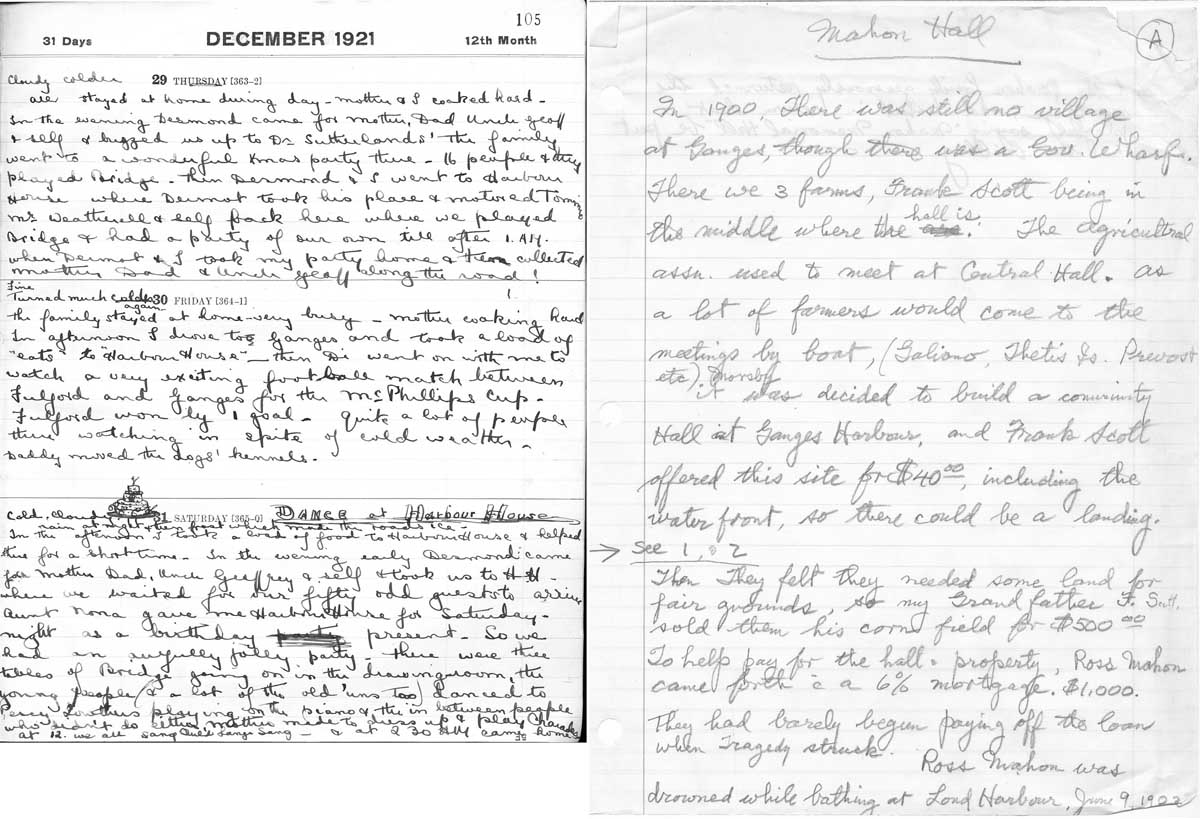 105
31 Days DECEMBER 1921 12th Month
Cloudy colder 29 THURSDAY [363-2]
all stayed at home during day - Mother & I cooked hard -
In the evening Desmond came for Mother, Dad Uncle Geoff
& self & bugged us up to Dr Sutherlands' The family
went to a wonderful Xmas party there - 16 people & they
played Bridge - then Dermond & I went to Harbour
House where Dermot took his place & motored Tommie
Mr Weatherell & self back here where we played
Bridge & had a party of our own till after 1. AM.
when Dermot & I took my party home & then collected
Mother Dad & Uncle Geoff along the road!
Fine
Turned much colder again 30 FRIDAY [364-1]
The family stayed at home very busy - Mother cooking hard
In afternoon I drove to Ganges and took a load of
"eats" to "Harbour House" - then Di went on with me to
watch a very exciting football match between
Fulford and Ganges for the McPhillips Cup -
Fulford won by 1 goal - Quite a lot of people
there watching in spite of cold weather -
Daddy moved the dogs' kennels.
Cold, Cloudy 31 SATURDAY [365-0] DANCE at Harbour House
rain at night & then frost which made the roads ice -
In the afternoon I took a load of food to Harbour House & helped
there for a short time - In the evening early Desmond came
for Mother Dad, Uncle Geoffrey & self & took us to H.H.
where we waited for our fifty odd guests to arrive
Aunt Nona gave me Harbour House for Saturday -
night as a birthday present - So we
had an awfully jolly party - there were three
tables of Bridge going on in the drawingroom, the
young people (& a lot of the old 'uns too) danced to
Percy Lowther's playing on the piano & the in between people
who didn't do either Mother made to dress up & play Charades
at 12. we all sang Auld Lang Sang - & at 2 30 AM came home
Mahon Hall
A
In 1900, There was still no village
at Ganges, though there was a Gov. Wharf.
There we 3 farms, Frank Scott being in
the middle where the hall is. The Agricultral
assn. used to meet at Central Hall. As
a lot of farmers would come to the
meetings by boat, (Galiano, Thetis Is. Prevost
etc). it was decided to build a community
Hall at Ganges Harbour, and Frank Scott
offered this site for $40 00, including the
water front, so there could be a landing.
→ See 1, & 2
Then They felt they needed some land for
fair grounds, so my Grand father F. Scott.
sold them his corn field for $500 00
To help pay for the hall & property, Ross Mahon
came forth c a 6% mortgage. $1,000.
They had barely begun paying off the loan
when Tragedy struck.
Ross Mahon was
drowned while bathing at Lond Harbour, June 9, 1902